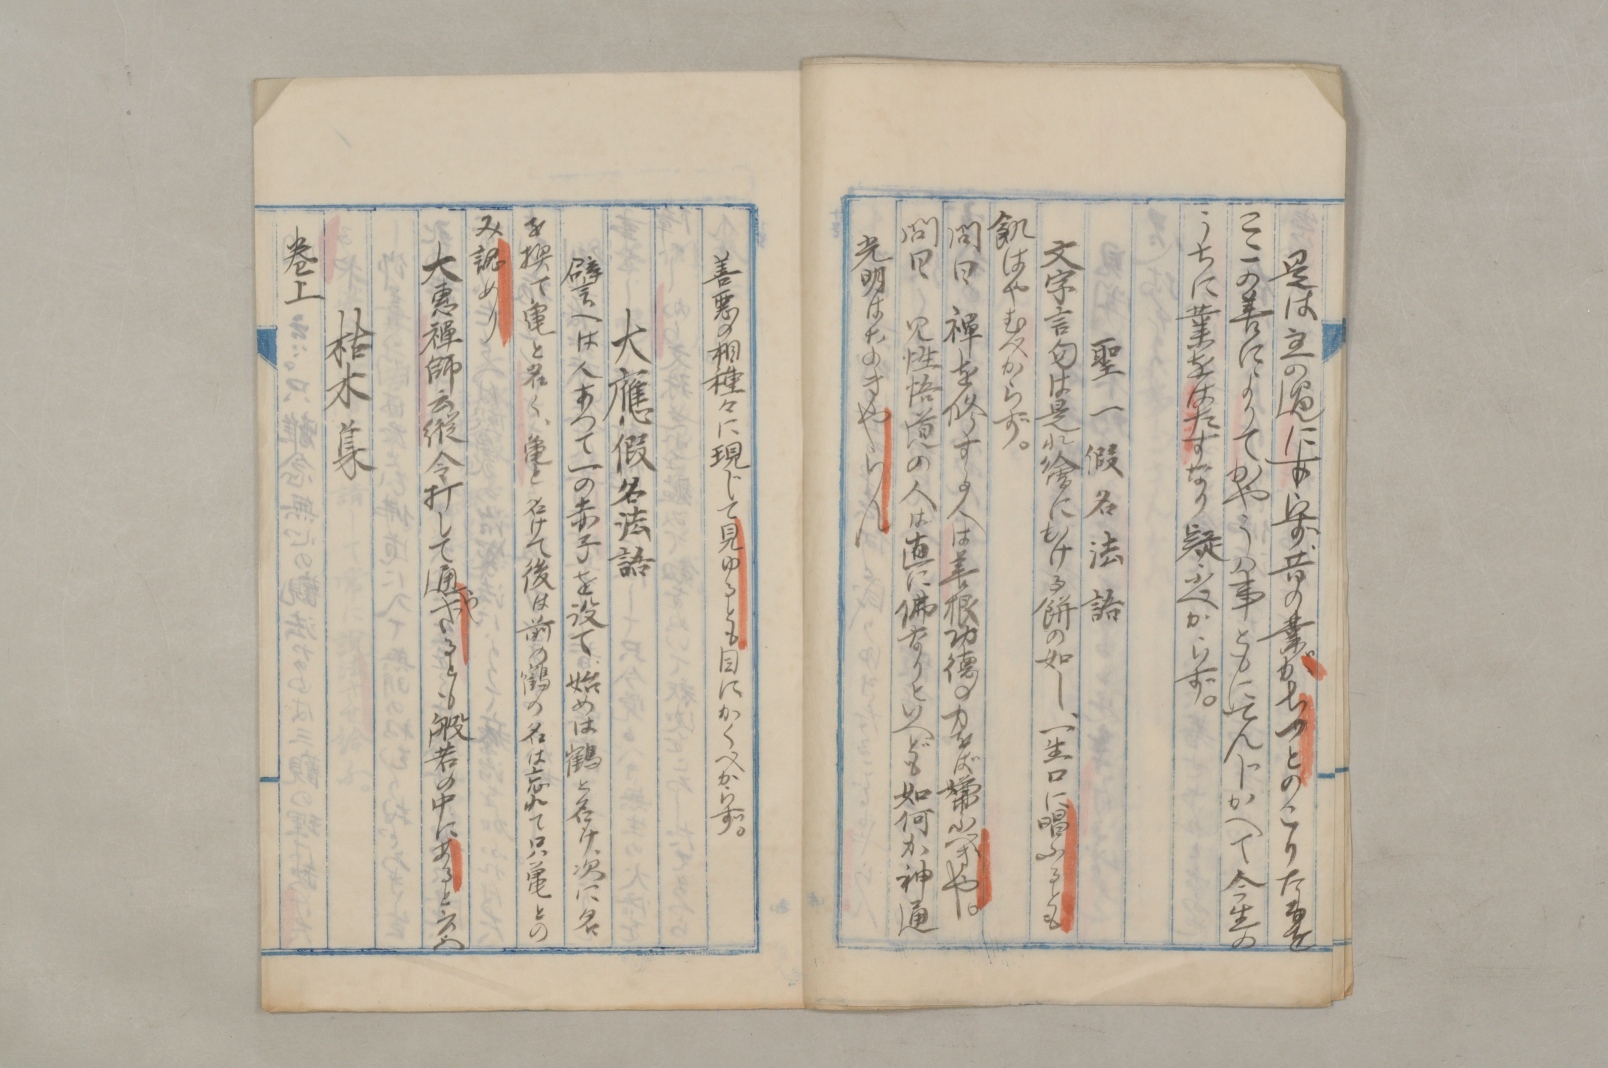 是は主の過にあらず昔の業がもつとのこりたるを
こゝの善によりてかやうの事ともにてんじかへて今生の
うちに業をはたすなり疑ふべからず。
聖一假名法語
文字言句は是れ繪にかける餅の如し、一生口に唱ふるとも
飢はやむべからず。
問曰禪を修する人は善根功德の力をば嫌ふべきや。
問曰く見性悟道の人は直に佛なりといへども如何か神通
光明はなきやらん
善惡の相種々に現じて見ゆるとも目にかくべからず。
大應假名法語
譬へは人あつて一の赤子を設て、始めは鶴と名け、次に名
を換て亀と名く、亀と名けて後は前の鶴の名は忘れて只亀との
み認めり
大惠禪師云縱令打して通ざるとも般若の中にあると云へ
枯木集
卷上